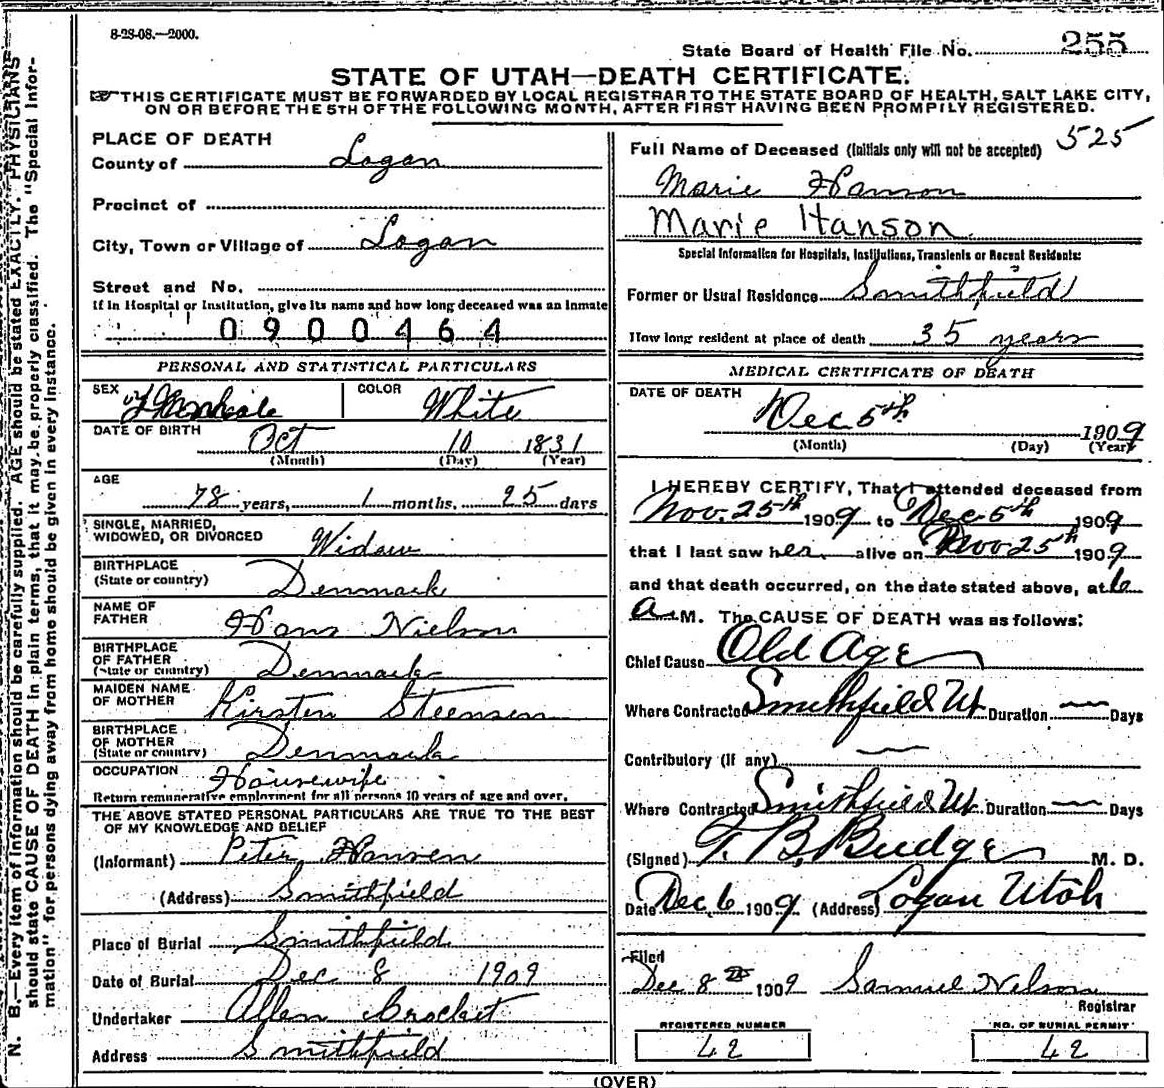 8-28-08.—2000.
State Board of Health File No. 255
STATE OF UTAH—DEATH CERTIFICATE.
THIS CERTIFICATE MUST BE FORWARDED BY LOCAL REGISTRAR TO THE STATE BOARD OF HEALTH, SALT LAKE CITY,
ON OR BEFORE THE 5TH OF THE FOLLOWING MONTH, AFTER FIRST HAVING BEEN PROMPTLY REGISTERED.
PLACE OF DEATH
County of Logan
Precinct of
City, Town or Village of Logan
Street and No.
If in Hospital or Institution, give its name and how long deceased was an inmate
0900464
PERSONAL AND STATISTICAL PARTICULARS
SEX Female COLOR White
DATE OF BIRTH Oct 10 1831
(Month) (Day) (Year)
AGE
78 years, 1 months, 25 days
SINGLE, MARRIED,
WIDOWED, OR DIVORCED Widow
BIRTHPLACE
(State or country) Denmark
NAME OF
FATHER Hans Nielson
BIRTHPLACE
OF FATHER
(State or country) Denmark
MAIDEN NAME
OF MOTHER Kirsten Steensen
BIRTHPLACE
OF MOTHER
(State or country) Denmark
OCCUPATION Housewife
Return remunerative employment for all persons 10 years of age and over.
THE ABOVE STATED PERSONAL PARTICULARS ARE TRUE TO THE BEST
OF MY KNOWLEDGE AND BELIEF
(Informant) Peter Hansen
(Address) Smithfield
Place of Burial Smithfield
Date of Burial Dec 8 1909
Undertaker Allen Brocket
Address Smithfield
525
Full Name of Deceased (Initials only will not be accepted)
Marie Hanson
Marie Hanson
Special Information for Hospitals, Institutions, Transients or Recent Residents:
Former or Usual Residence Smithfield
How long resident at place of death 35 years
MEDICAL CERTIFICATE OF DEATH
DATE OF DEATH
Dec 5th 1909
(Month) (Day) (Year)
I HEREBY CERTIFY, That I attended deceased from
Nov. 25th 1909 to Dec. 5th 1909
that I last saw her alive on Nov 25th 1909
and that death occurred, on the date stated above, at 6
a. M. The CAUSE OF DEATH was as follows:
Chief Cause Old Age
Where Contracted Smithfield Ut Duration — Days
Contributory (if any) —
Where Contracted Smithfield Ut Duration — Days
(Signed) T. B. Budge M. D.
Date Dec 6 1909 (Address) Logan Utah
Filed
Dec 8th 1909 Samuel Nelson
Registrar
REGISTERED NUMBER
42
NO. OF BURIAL PERMIT
42
(OVER)
N. B.—Every item of information should be carefully supplied. AGE should be stated EXACTLY. PHYSICIANS
should state CAUSE OF DEATH in plain terms, that it may be properly classified. The "Special Infor-
mation" for persons dying away from home should be given in every instance.